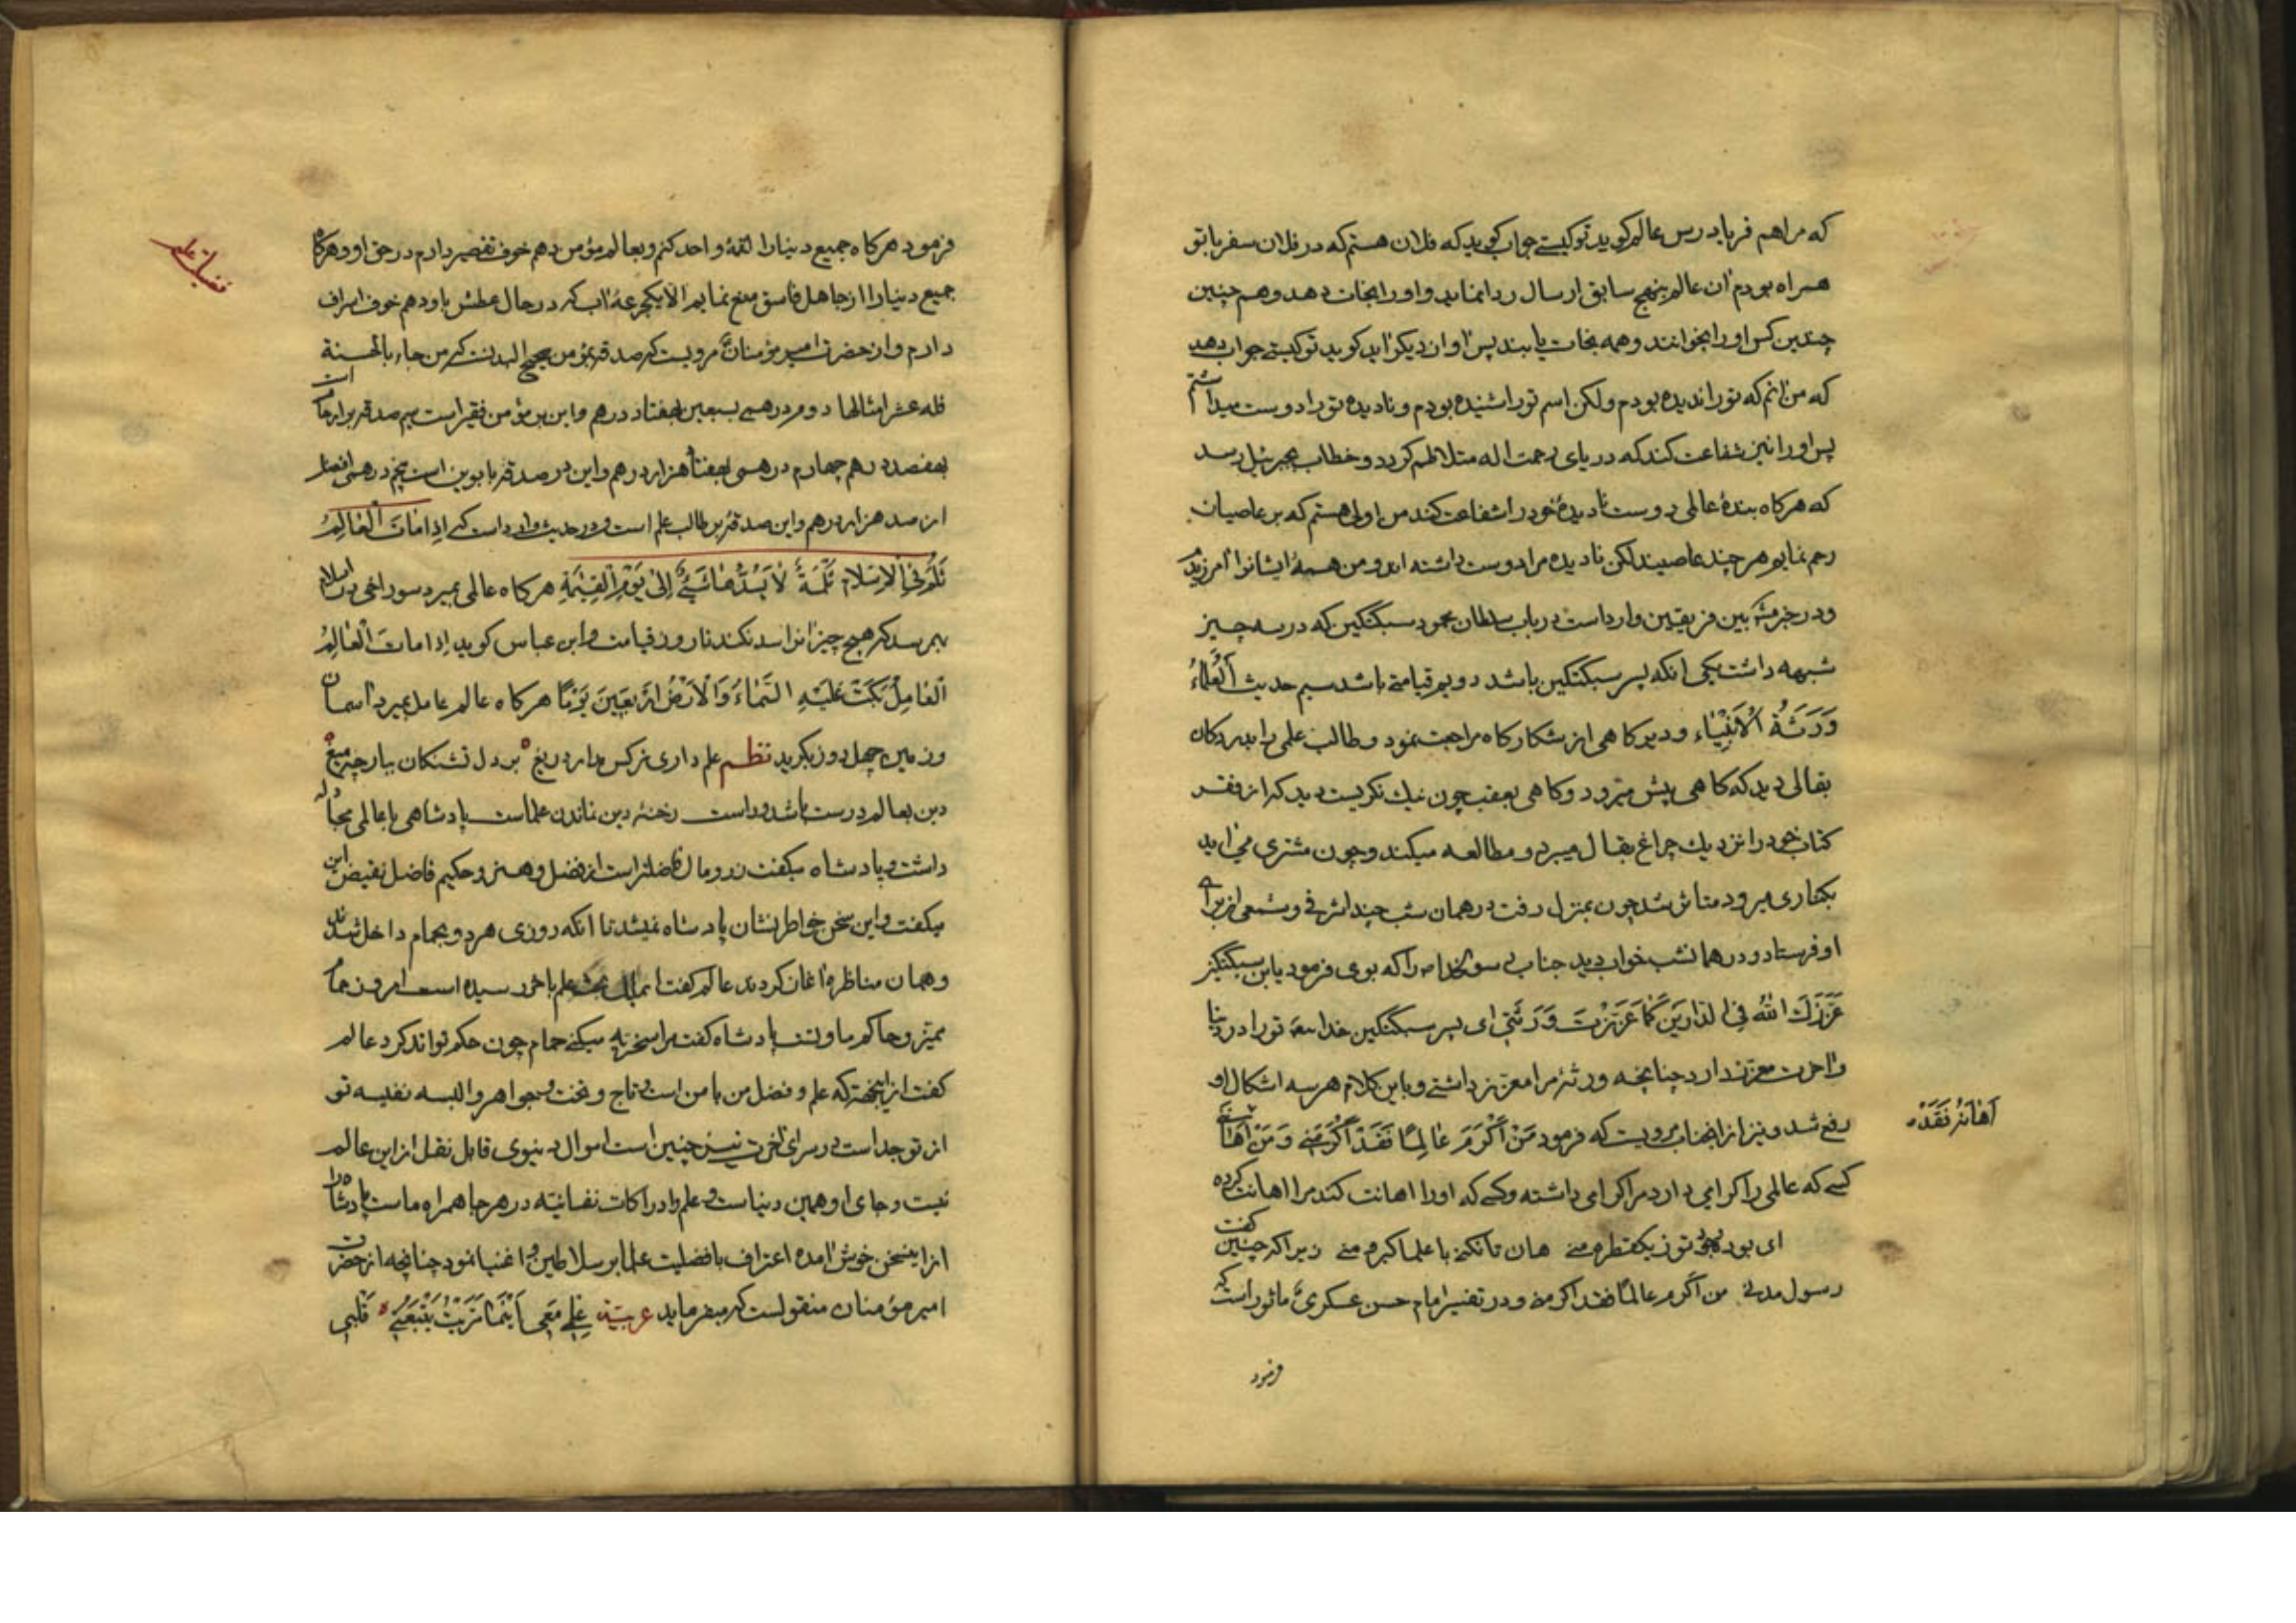 که مرا هم فریاد رس عالم کوید تو کیستے جواب کوید که فلان هستم که در فلان سفر با تو
همراه بودم ان عالم بنهج سابق ارسال ردا نماید و او را نجات دهد و هم چنین
چندین کس او را بخوانند و همه نجات یابند پس اواز دیکر اید کوید تو کیستے جواب دهد
که من انم که تو را ندیده بودم ولکن اسم تو را شنیده بودم و نادیده تو را دوست میداشتم
پس او را نیز شفاعت کند که دریای رحمت اله متلاطم کردد و خطاب بجبرئیل رسد
که هرکاه بندهٔ عالمی دوست نادیدهٔ خود را شفاعت کند من اولی هستم که بر عاصیان
رحم نمایم هر چند عاصیند لکن نادیده مرا دوست داشته اند و من همهٔ ایشانرا امرزیدم
و در خبر مشهٔ بین فریقین وارد است در باب سلطان محمود سبکتکین که در سه چیز
شبهه داشت یکی انکه پسر سبکتکین باشد دویم قیامتے باشد سیم حدیث اَلْعُلَمٰاءُ
وَرَثَةُ الْاَنْبِیٰاء و دیر کاهی از شکار کاه مراجعت نمود و طالب علمی را بدر دکان
بقالی دید که کاهی پیش میرود و کاهی بعقب چون نیك نکریست دید که از فقر
کتاب خود را نزدیك چراغ بقال میبرد و مطالعه میکند و چون مشتری می اید
بکناری میرود متاثر شد چون بمنزل رفت در همان شب چند اشرفی و شمعی از برای
او فرستاد و در همانشب خواب دید جناب رسولخدا ص را که بوی فرمود یابن سبکتکین
عَزَّزَكَ اللهُ فِی الدّٰارَیْنِ كَمٰا عَزَّزْتَ وَرَثَتِی ای پسر سبکتکین خدایتعه تو را در دنیا
و اخرت معزز دارد چنانچه ورثهٔ مرا معزز داشتے و باین کلام هر سه اشکال او
رفع شد و نیز از انجناب مرویست که فرمود مَنْ اَکْرَمَ عٰالِمًا فَقَدْ اَکْرَمَنے وَ مَنْ اَهٰانَنے
اَهٰانَهُ فَقَدْ
کسے که عالمی را کرامی دارد مرا کرامی داشته و کسے که او را اهانت کند مرا اهانت کرده
ای بود وجود تو ز یکقطره منے هان تا نکنے با علما کبر و منے زیرا که چنین گفت
رسول مدنے من اکرم عالمًا فقد اکرمنے و در تفسیر امام حسن عسکریؑ ماثور است که
فرمود
فرمود هرکاه جمیع دنیا را لقمهٔ واحد کنم و بعالم مؤمن دهم خوف تقصیر دارم در حق او و هرکاه
جمیع دنیا را از جاهل فاسق منع نمایم الا یکجرعهٔ اب که در حال عطش باو دهم خوف اسراف
دارم و از حضرت امیر مؤمنانؑ مرویست که صدقه بمؤمن صحیح البدنست که من جاء بالحسنة
فله عشر امثالها دوم درهمے بسبعین بهفتاد درهم و این بر مؤمن فقیر است سیم صدقه بر ارحام است
بهفصد درهم چهارم درهمی بهفتاد هزار درهم و این در صدقه بابوین است پنجم درهمی افضل
از صد هزار درهم و این صدقهٔ بر طالب علم است و در حدیث وارد است که اِذٰا مٰاتَ الْعٰالِمُ
ثُلِمَ فِی الْاِسْلٰامِ ثُلْمَةٌ لٰا یَسُدُّهٰا شَیْءٌ اِلیٰ یَوْمِ الْقِیٰمَةِ هرکاه عالمی بمیرد سوراخی در اسلام
بهمرسد که هیچ چیز انرا سد نکند تا روز قیامت و ابن عباس کوید اِذٰا مٰاتَ الْعٰالِمُ
الْعٰامِلُ بَکَتْ عَلَیْهِ السَّمٰاءُ وَالْاَرْضُ اَرْبَعِینَ یَوْمًا هرکاه عالم عامل بمیرد اسمان
و زمین چهل روز بکرید نظم علم داری ز کس مدار دریغ ۵ بر دل تشنکان ببار چو میغ ۵
دین بعالم درست باشد و راست رخنهٔ دین نماندن علماست پادشاهی با عالمی مجادله
داشت و پادشاه میکفت زر و مال فاضلتر است از فضل و هنر و حکیم فاضل نقیض این
میکفت و این سخن خواطر نشان پادشاه نمیشد تا انکه روزی هر دو بحمام داخل شدند
و همان مناظره اغاز کردند عالم کفت بحث علم باخر رسیده است امروز حمام
ممیز و حاکم ماوتست پادشاه کفت مرا سخریه میکنے حمام چون حکم تواند کرد عالم
کفت از اینجهته که علم و فضل من با من است و تاج و تخت و جواهر و البسه نفیسه تو
از تو جداست در سرای اخرت نیز چنین است اموال دنیوی قابل نقل از این عالم
نیست و جای او همین دنیاست و علم و ادراکات نفسانیّه در هر جا همراه ماست پادشاه را
از این سخن خوش امده اعتراف بافضلیت علما بر سلاطین و اغنیا نمود چنانچه از حضرت
امیر مؤمنان منقولست که میفرماید عربیّة عِلْمِی مَعِی اَیْنَمٰا یَتْبَعُنِے ۵ قَلْبِی